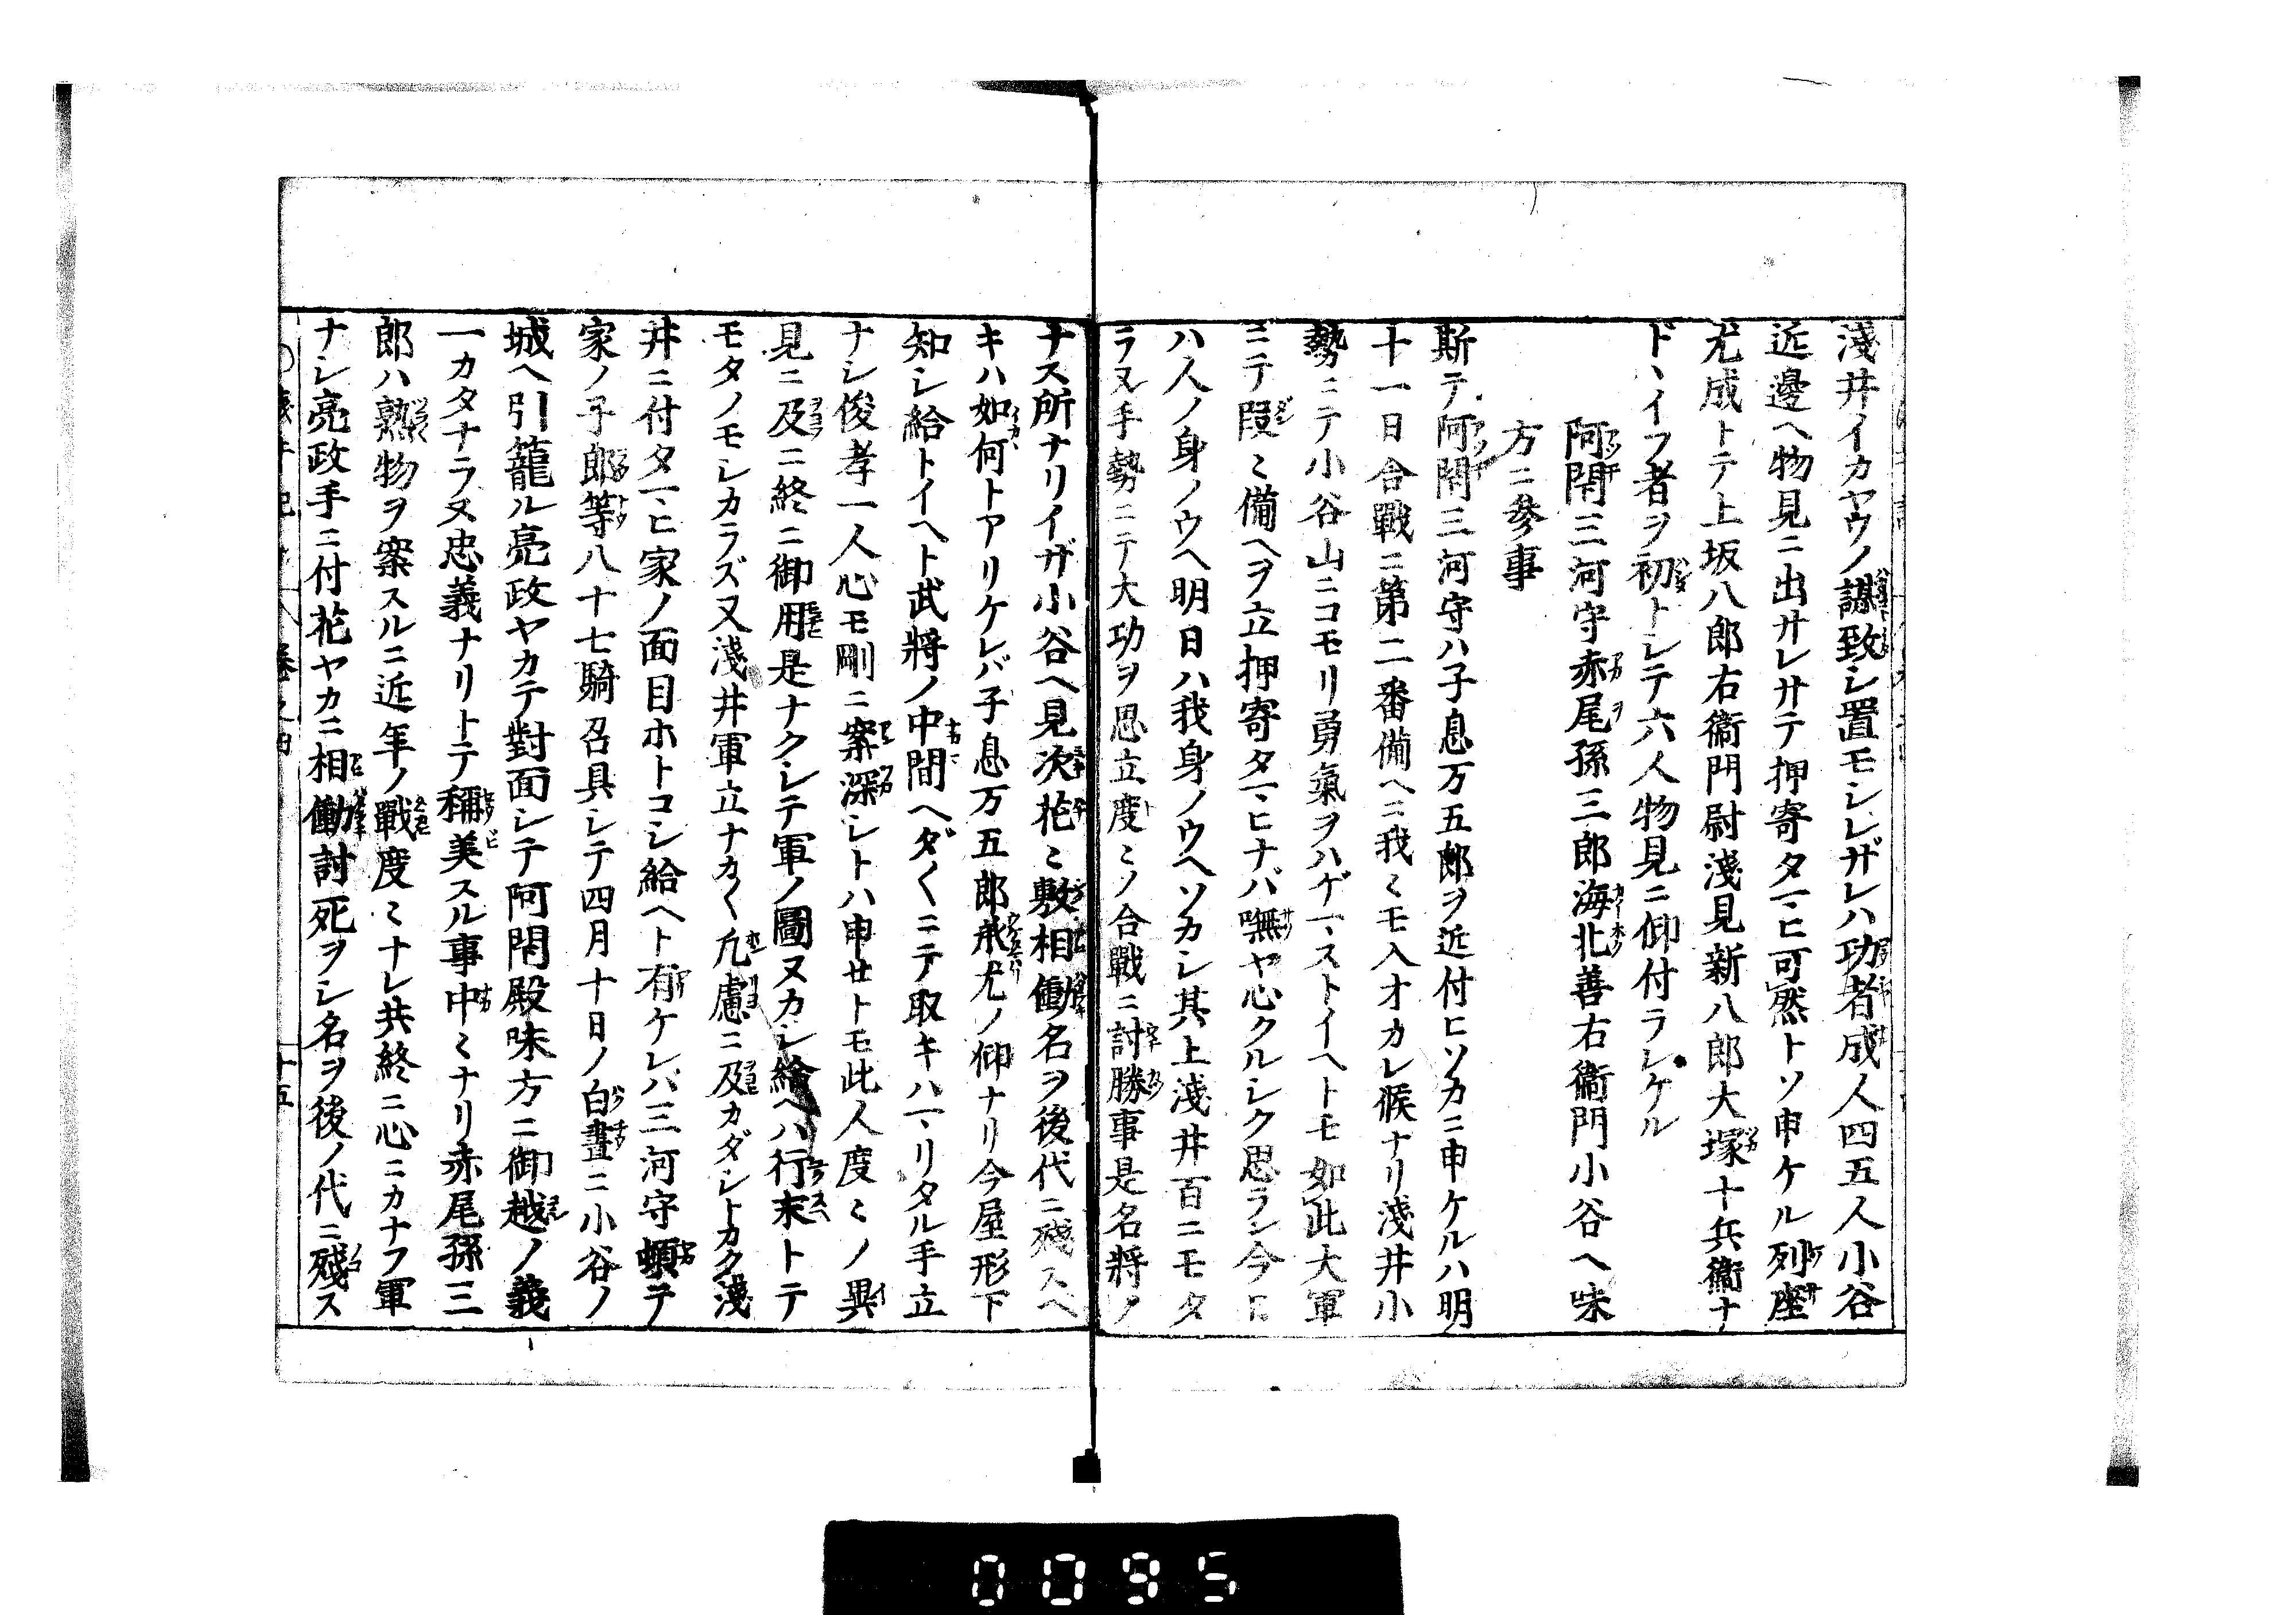 淺井イカヤウノ謀致シ置モシレザレハ功者成人四五人小谷
近邊ヘ物見ニ出サレサテ押寄タマヒ可然トソ申ケル列座
尤成トテ上坂八郎右衞門尉淺見新八郎大塚十兵衞ナ
ドヽイフ者ヲ初トシテ六人物見ニ仰付ラレケル
阿閇三河守赤尾孫三郎海北善右衞門小谷ヘ味
方ニ參事
斯テ阿閇三河守ハ子息万五郎ヲ近付ヒソカニ申ケルハ明
十一日合戰ニ第二番備ヘニ我〻モ入オカレ候ナリ淺井小
勢ニテ小谷山ニコモリ勇氣ヲハゲマストイヘトモ如此大軍
ニテ段〻備ヘヲ立押寄タマヒナバ嘸ヤ心クルシク思ラン今日
ハ人ノ身ノウヘ明日ハ我身ノウヘソカシ其上淺井百ニモタ
ラヌ手勢ニテ大功ヲ思立度〻ノ合戰ニ討勝事是名將ノ
ナス所ナリイザ小谷ヘ見次花〻敷相働名ヲ後代ニ殘スヘ
キハ如何トアリケレバ子息万五郎承尤ノ仰ナリ今屋形下
知シ給トイヘト武將ノ中間ヘダ〱ニテ取キハマリタル手立
ナシ俊孝一人心モ剛ニ案深シトハ申せトモ此人度〻ノ異
見ニ及ニ終ニ御用是ナクシテ軍ノ圖ヌカシ給ヘハ行末トテ
モタノモシカラズ又淺井軍立ナカ〱凡慮ニ及カダシトカク淺
井ニ付タマヒ家ノ面目ホトコシ給ヘト有ケレバ三河守頓テ
家ノ子郎等八十七騎召具シテ四月十日ノ白晝ニ小谷ノ
城ヘ引籠ル亮政ヤカテ對面シテ阿閇殿味方ニ御越ノ義
一カタナラヌ忠義ナリトテ稱美スル事中〻ナリ赤尾孫三
郎ハ熟物ヲ案スルニ近年ノ戰度〻ナレ共終ニ心ニカナフ軍
ナシ亮政手ニ付花ヤカニ相働討死ヲシ名ヲ後ノ代ニ殘ス
十五
0095